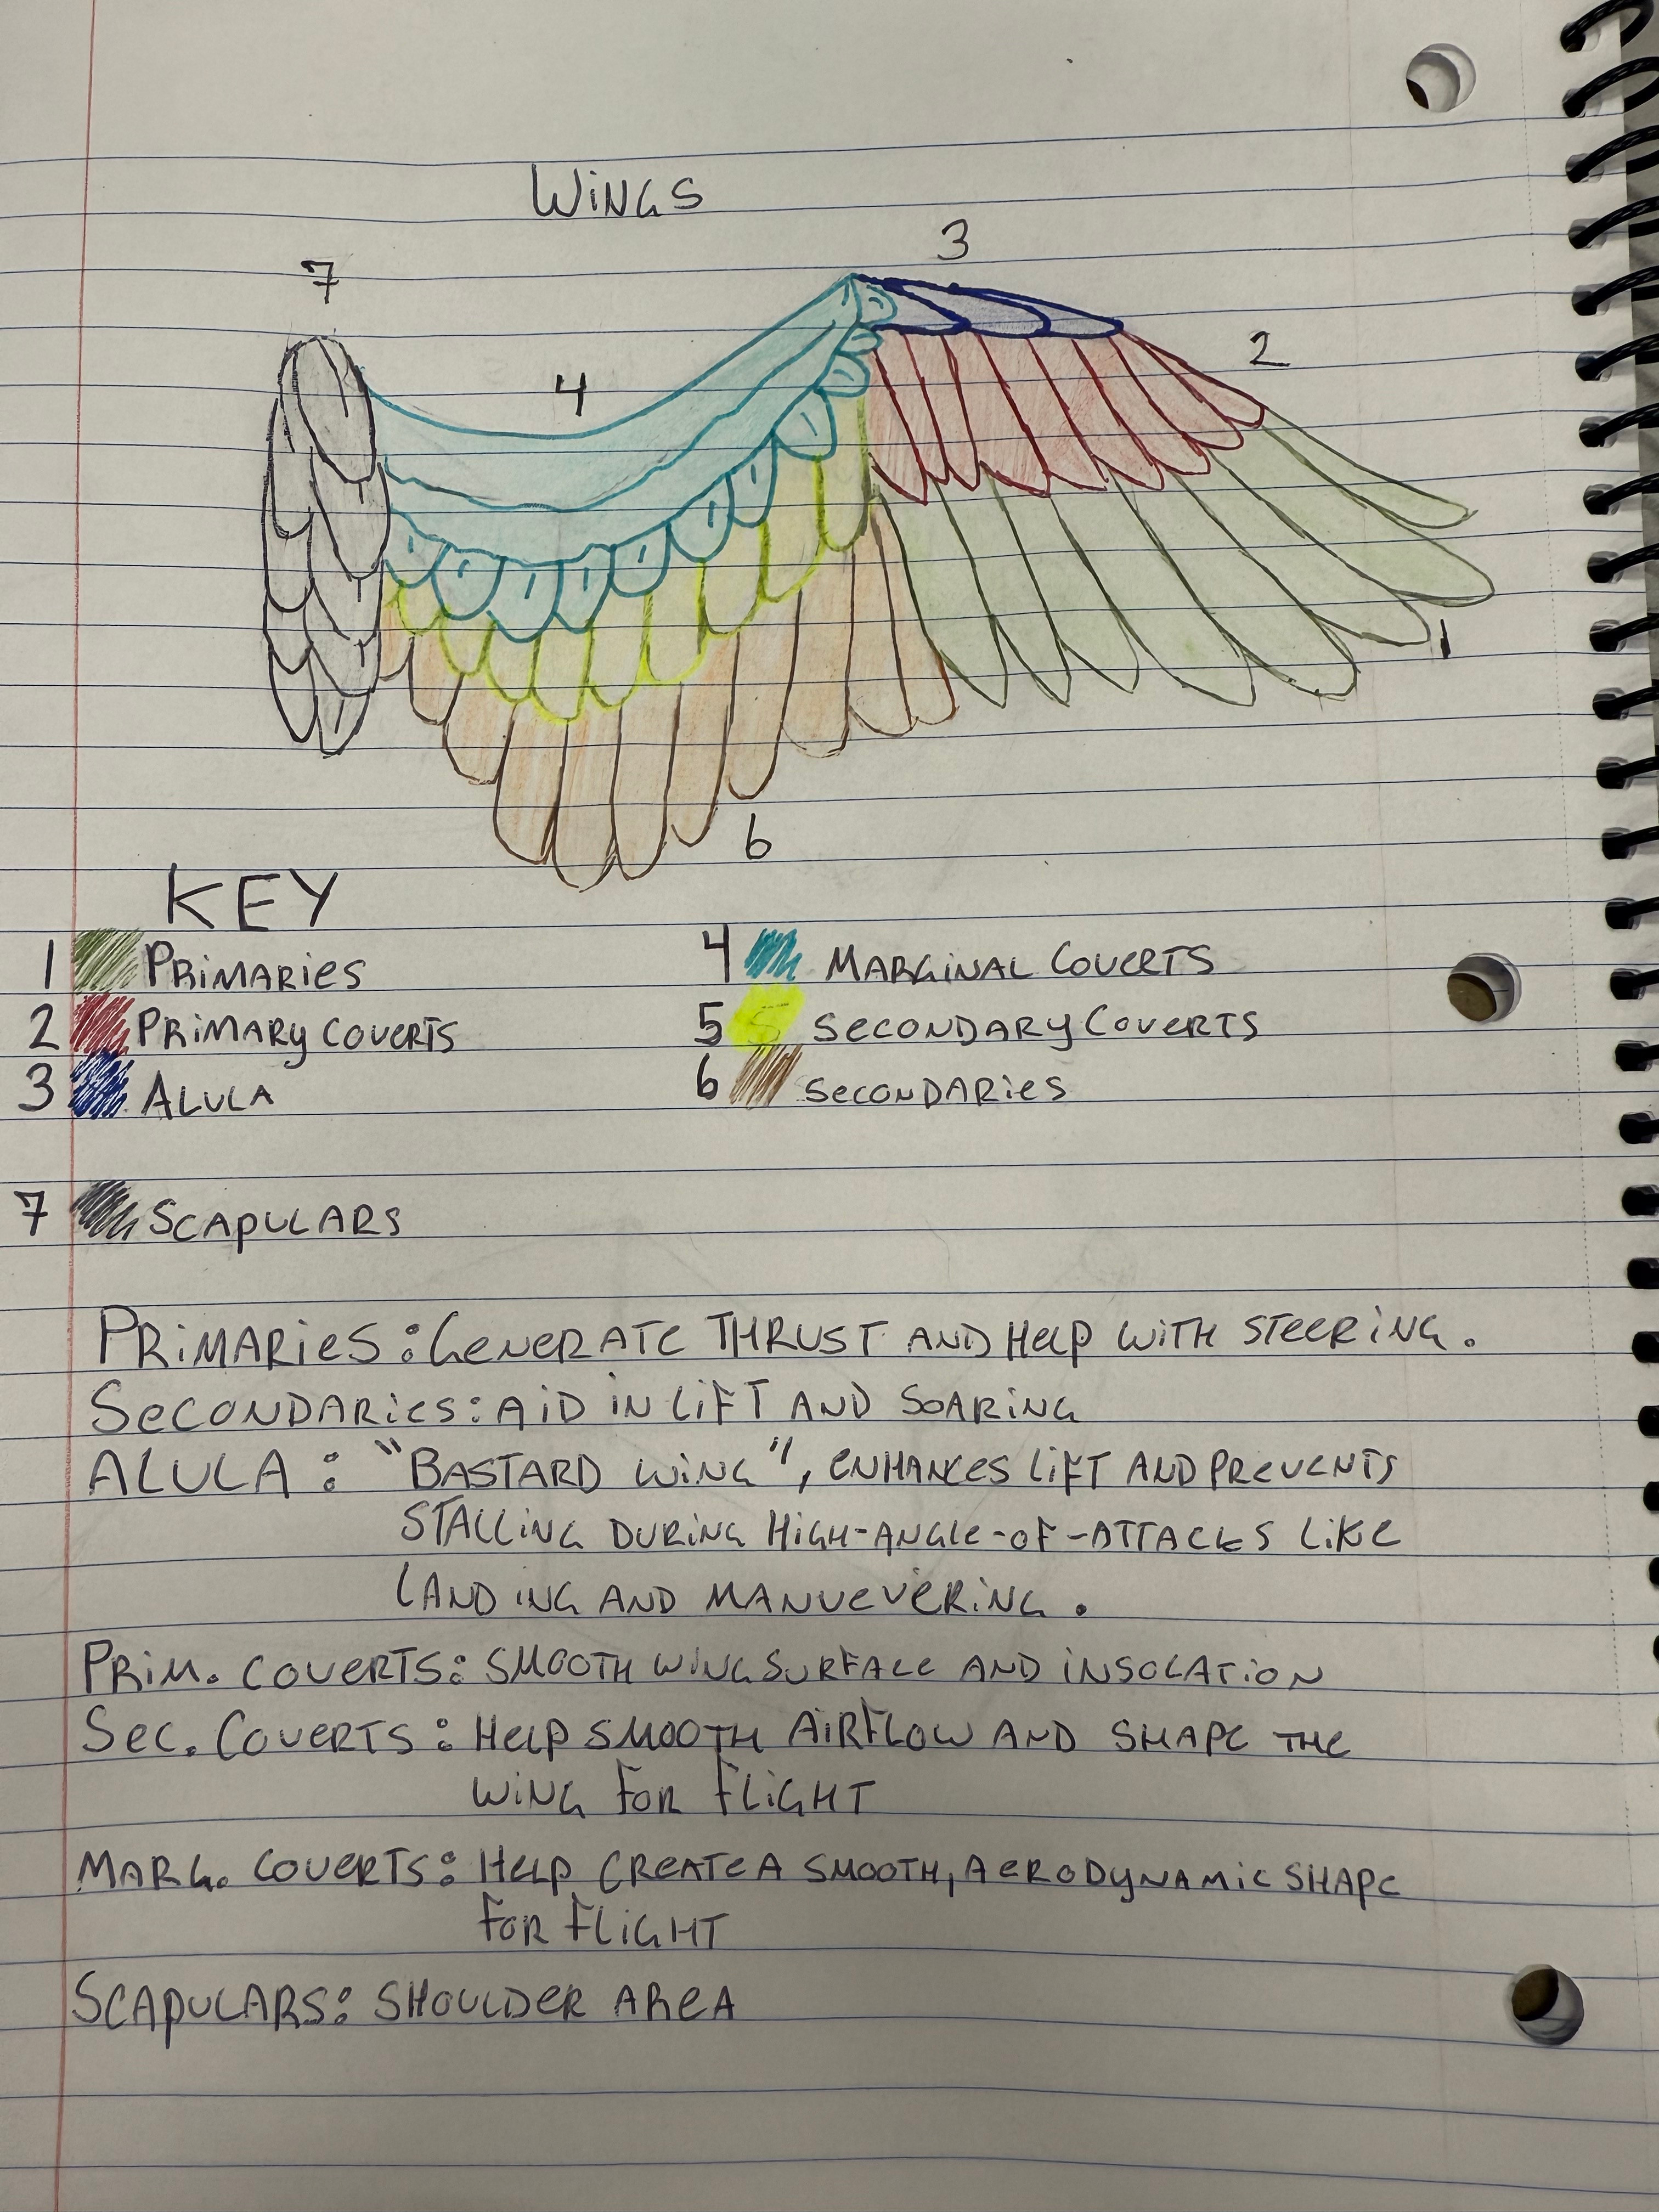 WINGS
3
7
2
4
1
6
KEY
1 PRIMARIES
2 PRIMARY COVERTS
3 ALULA
4 MARGINAL COVERTS
5 SECONDARY COVERTS
6 SECONDARIES
7 SCAPULARS
PRIMARIES: GENERATE THRUST AND HELP WITH STEERING.
SECONDARIES: AID IN LIFT AND SOARING
ALULA: "BASTARD WING", ENHANCES LIFT AND PREVENTS
STALLING DURING HIGH-ANGLE-OF-ATTACKS LIKE
LANDING AND MANUEVERING.
PRIM. COVERTS: SMOOTH WING SURFACE AND INSOLATION
SEC. COVERTS: HELP SMOOTH AIRFLOW AND SHAPE THE
WING FOR FLIGHT
MARG. COVERTS: HELP CREATE A SMOOTH, AERODYNAMIC SHAPE
FOR FLIGHT
SCAPULARS: SHOULDER AREA